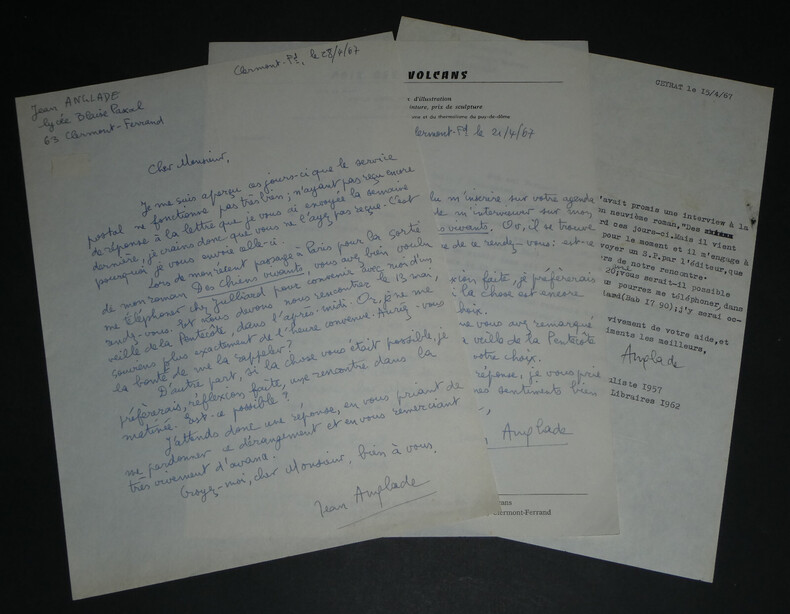 Jean ANGLADE
lycée Blaise Pascal
63 Clermont-Ferrand
Clermont-Fd, le 28/4/67
Cher Monsieur,
Je me suis aperçu ces jours-ci que le service
postal ne fonctionne pas très bien; n'ayant pas reçu encore
de réponse à la lettre que je vous ai envoyée la semaine
dernière, je crains donc que vous ne l'ayez pas reçue. C'est
pourquoi je vous envoie celle-ci.
Lors de mon récent passage à Paris pour la sortie
de mon roman Des chiens vivants, vous avez bien voulu
me téléphoner chez Julliard pour convenir avec moi d'un
rendez-vous. Et nous devons nous rencontrer le 13 mai,
veille de la Pentecôte, dans l'après-midi. Or, je ne me
souviens plus exactement de l'heure convenue. Auriez-vous
la bonté de me la rappeler?
D'autre part, si la chose vous était possible, je
préfèrerais, réflexion faite, une rencontre dans la
matinée. Est-ce possible?
J'attends donc une réponse, en vous priant de
me pardonner ce dérangement et en vous remerciant
très vivement d'avance.
Croyez-moi, cher Monsieur, bien à vous.
Jean Anglade
VOLCANS
d'illustration
inture, prix de sculpture
et du thermalisme du puy-de-dôme
Clermont-Fd le 21/4/67
lu m'inscrire sur votre agenda
de m'interviewer sur mon
vivants. Or, il se trouve
de ce rendez-vous: est-ce
xion faite, je préfèrerais
i la chose est encore
choix.
ue vous avez remarqué
a veille de la Pentecôte
votre choix.
réponse, je vous prie
mes sentiments bien
Anglade
cans
Clermont-Ferrand
CEYRAT le 15/4/67
'avait promis une interview à la
on neuvième roman,"Des
rd ces jours-ci.Mais il vient
pour le moment et il m'engage à
voyer un S.P.par l'éditeur,que
rs de notre rencontre.
20,vous serait-il possible
us pourrez me téléphoner dans
iard(Bab 17.90);j'y serai oc-
vivement de votre aide,et
iments les meilleurs,
Anglade
uliste 1957
Libraires 1962